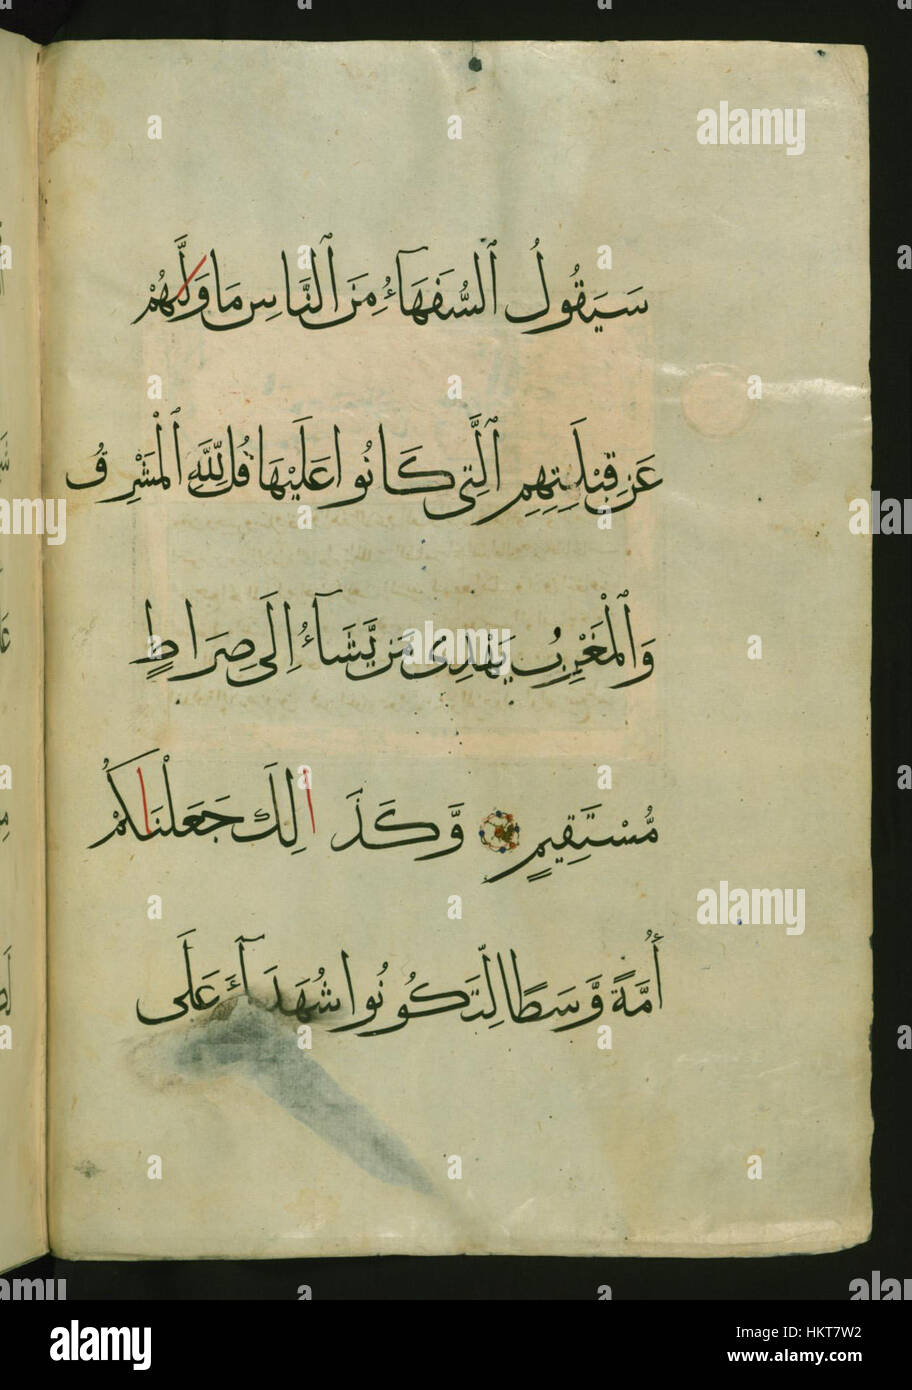 سَيَقُولُ ٱلسُّفَهَآءُ مِنَ ٱلنَّاسِ مَا وَلَّىٰهُمْ
عَن قِبْلَتِهِمِ ٱلَّتِى كَانُوا عَلَيْهَا قُل لِّلَّهِ ٱلْمَشْرِقُ
وَٱلْمَغْرِبُ يَهْدِى مَن يَّشَآءُ إِلَى صِرَاطٍ
مُّسْتَقِيمٍ وَّكَذَالِكَ جَعَلْنَاكُمْ
أُمَّةً وَّسَطًا لِّتَكُونُوا شُهَدَآءَ عَلَى
alamy
alamy
alamy
Image ID: HKT7W2
www.alamy.com